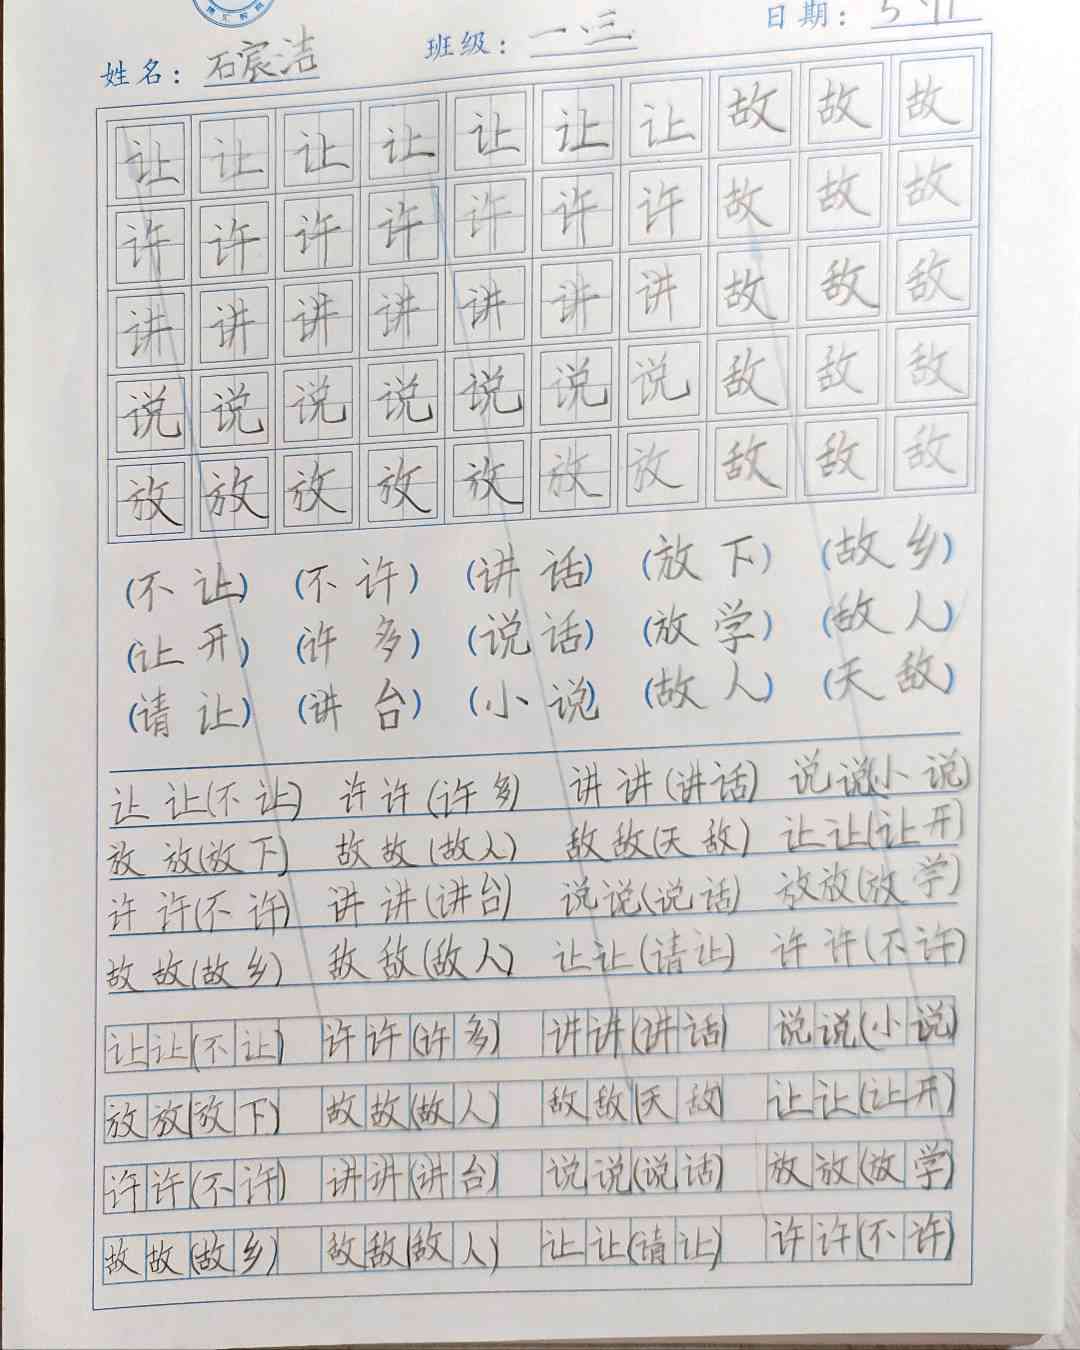 姓名：石宸洁 班级：一、三 日期：5.11
让 让 让 让 让 让 让 故 故 故
许 许 许 许 许 许 许 故 故 故
讲 讲 讲 讲 讲 讲 讲 故 敌 敌
说 说 说 说 说 说 说 敌 敌 敌
放 放 放 放 放 放 放 敌 敌 敌
(不 让) (不 许) (讲 话) (放 下) (故 乡)
(让 开) (许 多) (说 话) (放 学) (敌 人)
(请 让) (讲 台) (小 说) (故 人) (天 敌)
让 让(不 让) 许 许 (许 多) 讲 讲 (讲 话) 说 说(小 说)
放 放(放 下) 故 故 (故 人) 敌 敌(天 敌) 让 让(让 开)
许 许(不 许) 讲 讲 (讲 台) 说 说(说 话) 放 放(放 学)
故 故(故 乡) 敌 敌(敌 人) 让 让(请 让) 许 许(不 许)
让 让(不 让) 许 许(许 多) 讲 讲(讲 话) 说 说(小 说)
放 放(放 下) 故 故(故 人) 敌 敌(天 敌) 让 让(让 开)
许 许(不 许) 讲 讲(讲 台) 说 说(说 话) 放 放(放 学)
故 故(故 乡) 敌 敌(敌 人) 让 让(请 让) 许 许(不 许)